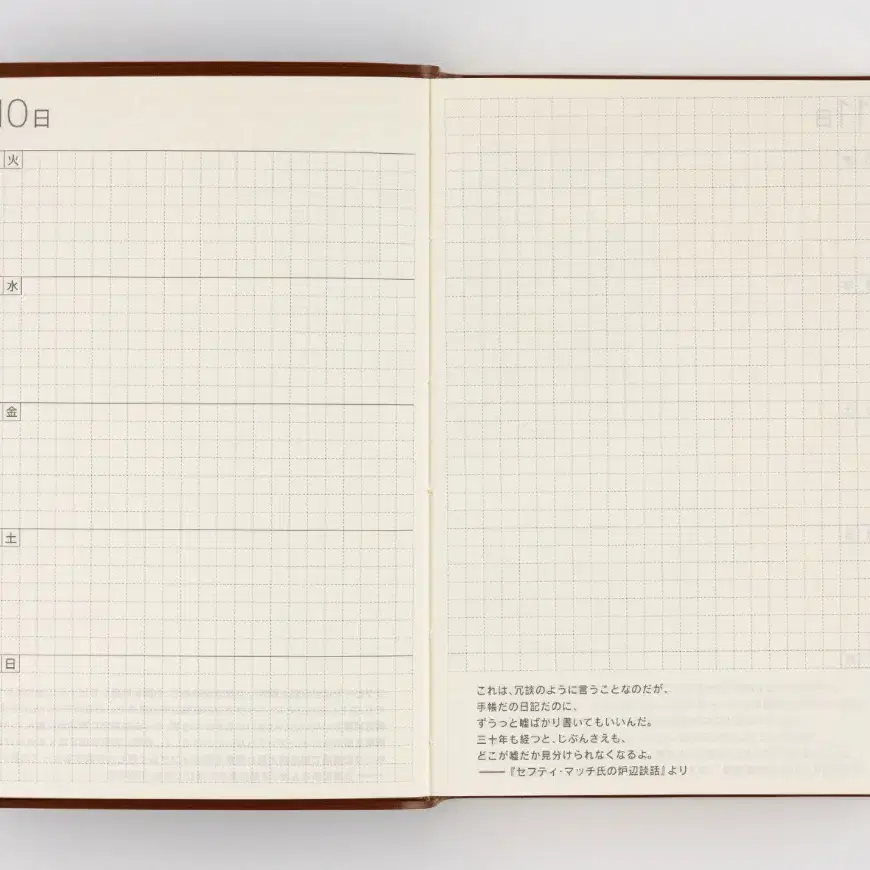 10日
火
水
金
土
日
これは、冗談のように言うことなのだが、
手帳だの日記だのに、
ずうっと嘘ばかり書いてもいいんだ。
三十年も経つと、じぶんさえも、
どこが嘘だか見分けられなくなるよ。
──『セフティ・マッチ氏の炉辺談話』より